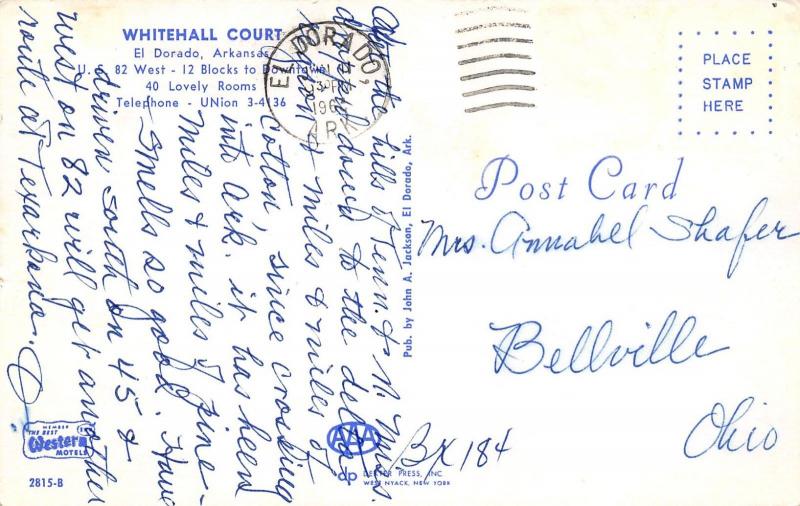 WHITEHALL COURT
El Dorado, Arkansas
U. 82 West - 12 Blocks to Downtown
40 Lovely Rooms
Telephone - UNion 3-4136
EL DORADO,
PM
196
ARK.
PLACE
STAMP
HERE
Post Card
After the hills of Tenn. & N. Miss.
dropped down to the delta
region & miles & miles of
cotton, since crossing
into Ark. it has been
miles & miles of pine-
smells so good. Have
driven south on 45 &
west on 82 will get another
route at Texarkana.
Mrs. Annabel Shafer
Bellville
Ohio
Bx 184
Pub. by John A. Jackson, El Dorado, Ark.
MEMBER
THE BEST
Western
MOTELS
2815-B
AAA
dp
DEXTER PRESS, INC.
WEST NYACK, NEW YORK